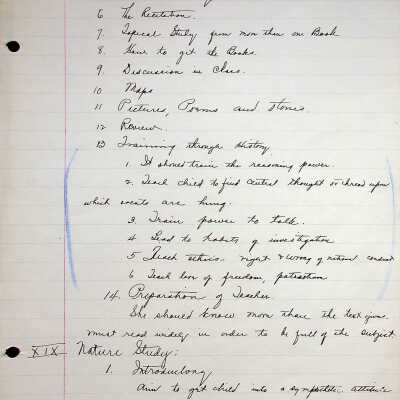 6 The Recitation.
7. Topical Study from more than one Book
8. How to get the Books
9. Discussion in Class.
10 Maps
11 Pictures, Poems and stories.
12 Review.
13 Training through History
1. It should train the reasoning power.
2. Teach child to find central thought or thread upon
which events are hung.
3. Train power to talk.
4 Lead to habits of investigation
5 Teach ethics. right & wrong of national conduct
6 Teach love of freedom, patriotism
14. Preparation of Teacher.
She should know more than the text gives.
must read widely in order to be full of the subject.
XIX Nature Study:
1. Introductory
Aim to get child into a sympathetic attitude